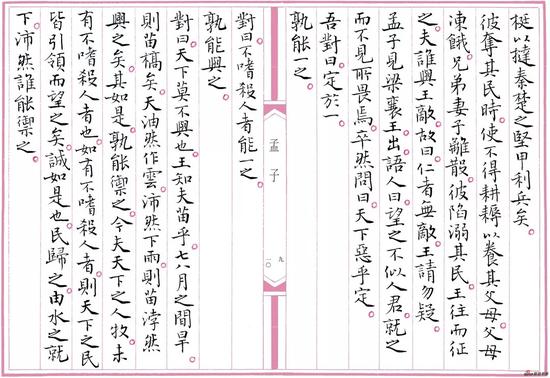 梃以撻秦楚之堅甲利兵矣。
彼奪其民時。使不得耕耨以養其父母。父母
凍餓。兄弟妻子離散。彼陷溺其民。王往而征
之。夫誰與王敵。故曰。仁者無敵。王請勿疑。
孟子見梁襄王。出語人曰。望之不似人君。就之
而不見所畏焉。卒然問曰。天下惡乎定。
吾對曰。定於一。
孰能一之。
孟子
九
一〇
對曰。不嗜殺人者能一之。
孰能與之。
對曰。天下莫不與也。王知夫苗乎。七八月之間旱。
則苗槁矣。天油然作雲。沛然下雨。則苗浡然
興之矣。其如是。孰能禦之。今夫天下之人牧。未
有不嗜殺人者也。如有不嗜殺人者。則天下之民
皆引領而望之矣。誠如是也。民歸之。由水之就
下。沛然誰能禦之。